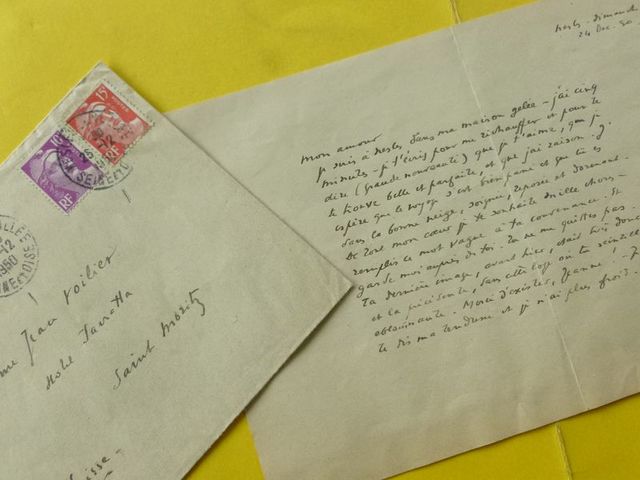 Nesles - dimanche
24 Dec. 50
mon amour
je suis à Nesles dans ma maison gelée - j'ai cinq
minutes - je t'écris pour me réchauffer et pour te
dire (grande nouveauté) que je t'aime, que je
te trouve belle et parfaite, et que j'ai raison. J'
espère que le voyage s'est bien passé et que tu es
dans la bonne neige, soignée, reposée et dormant.
De tout mon coeur je te souhaite mille choses -
remplis ce mot vague à ta convenance. Et
garde moi auprès de toi. Tu ne me quittes pas.
Ta dernière image, avant hier, était très douce
et la précédente, dans cette loge où tu
éblouissante. Merci d'exister, Jeanne ! - Je
te dis ma tendresse et je n'ai plus froid.
15
RF
RF
SEINE ET O
12
1950
SEINE ET OISE
me Jean Voilier
Hotel
Saint Moritz
Suisse -